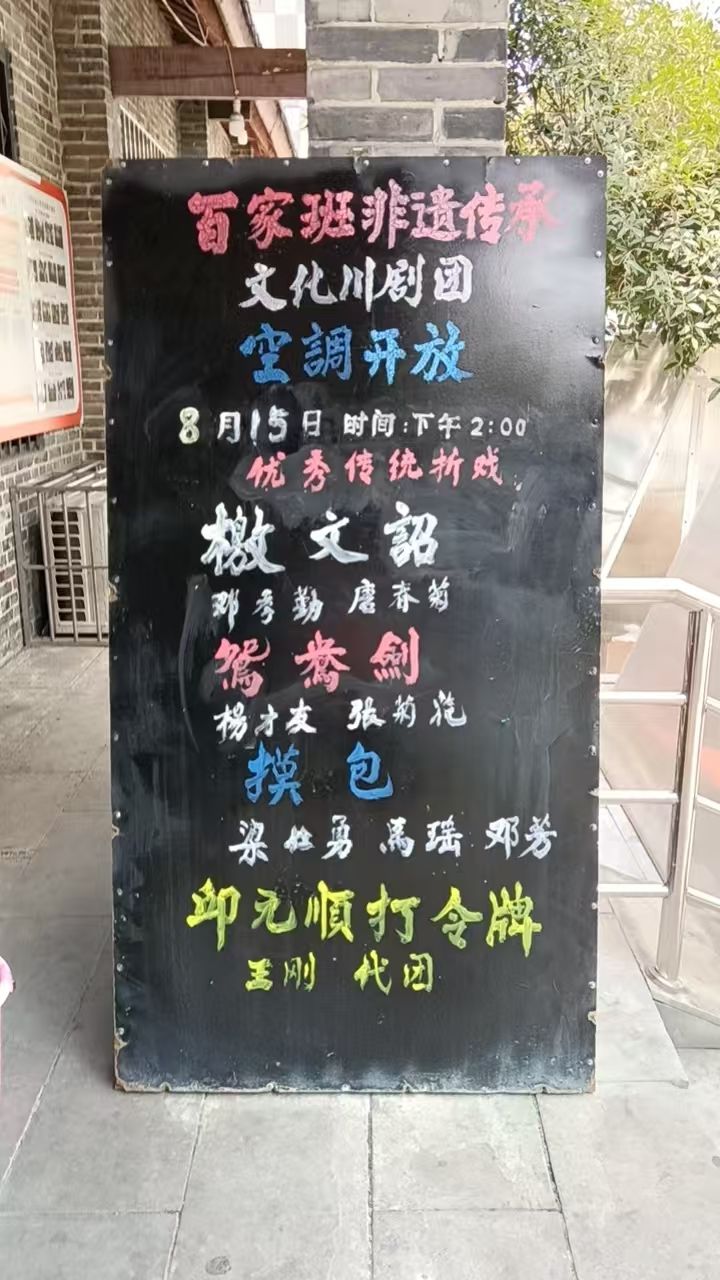 百家班非遗传承
文化川剧团
空調开放
8月15日 时间:下午2:00
优秀传统折戏
檄文詔
邓秀勤 唐春菊
鴛鴦劍
楊才友 張菊花
摸包
梁 勇 馬瑶 邓芳
邱元順打令牌
王刚 代团